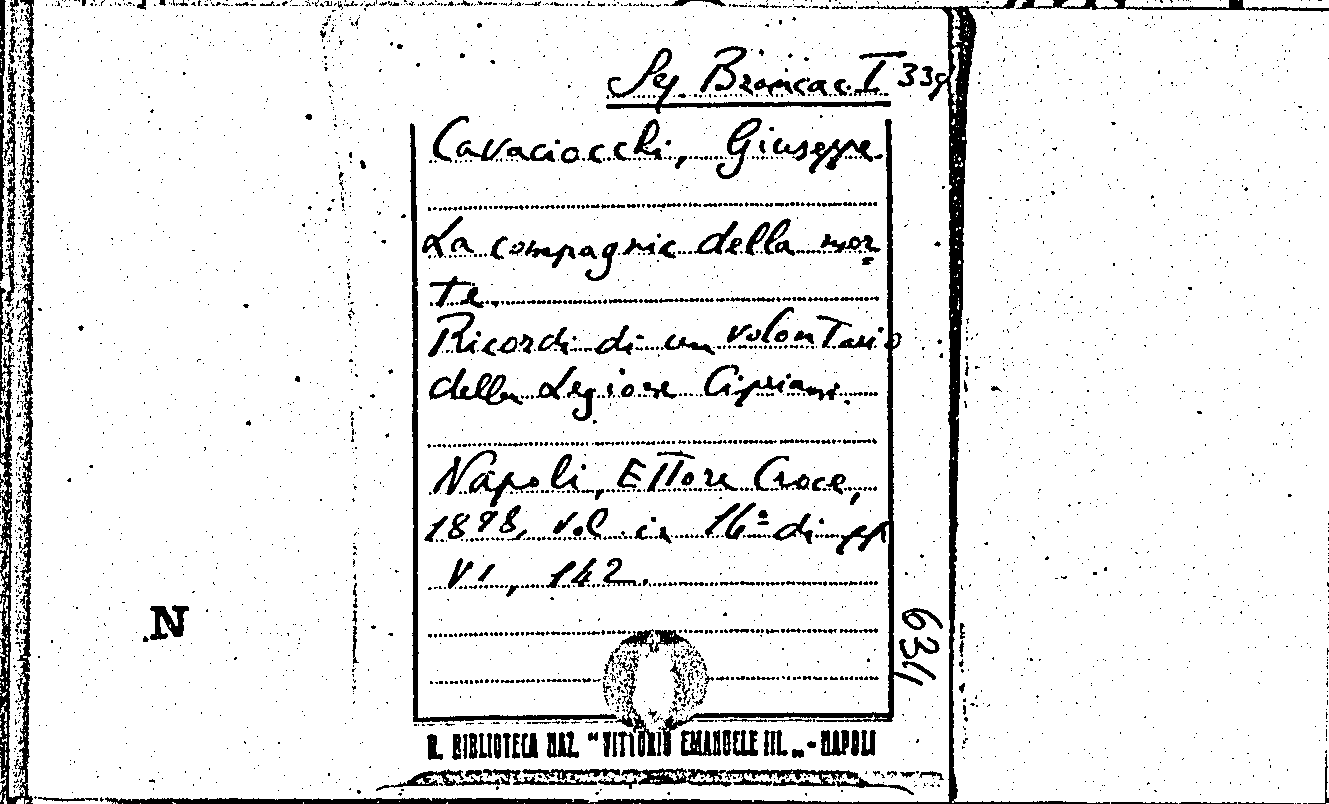 Sez. Brancac. I 339
Cavaciocchi, Giuseppe.
La compagnia della mor
te.
Ricordi di un volontario
della Legione Cipriani.
Napoli, Ettore Croce,
1898, vol. in 16º di pp
VI, 142.
N
634
R. BIBLIOTECA NAZ. "VITTORIO EMANUELE III." - NAPOLI